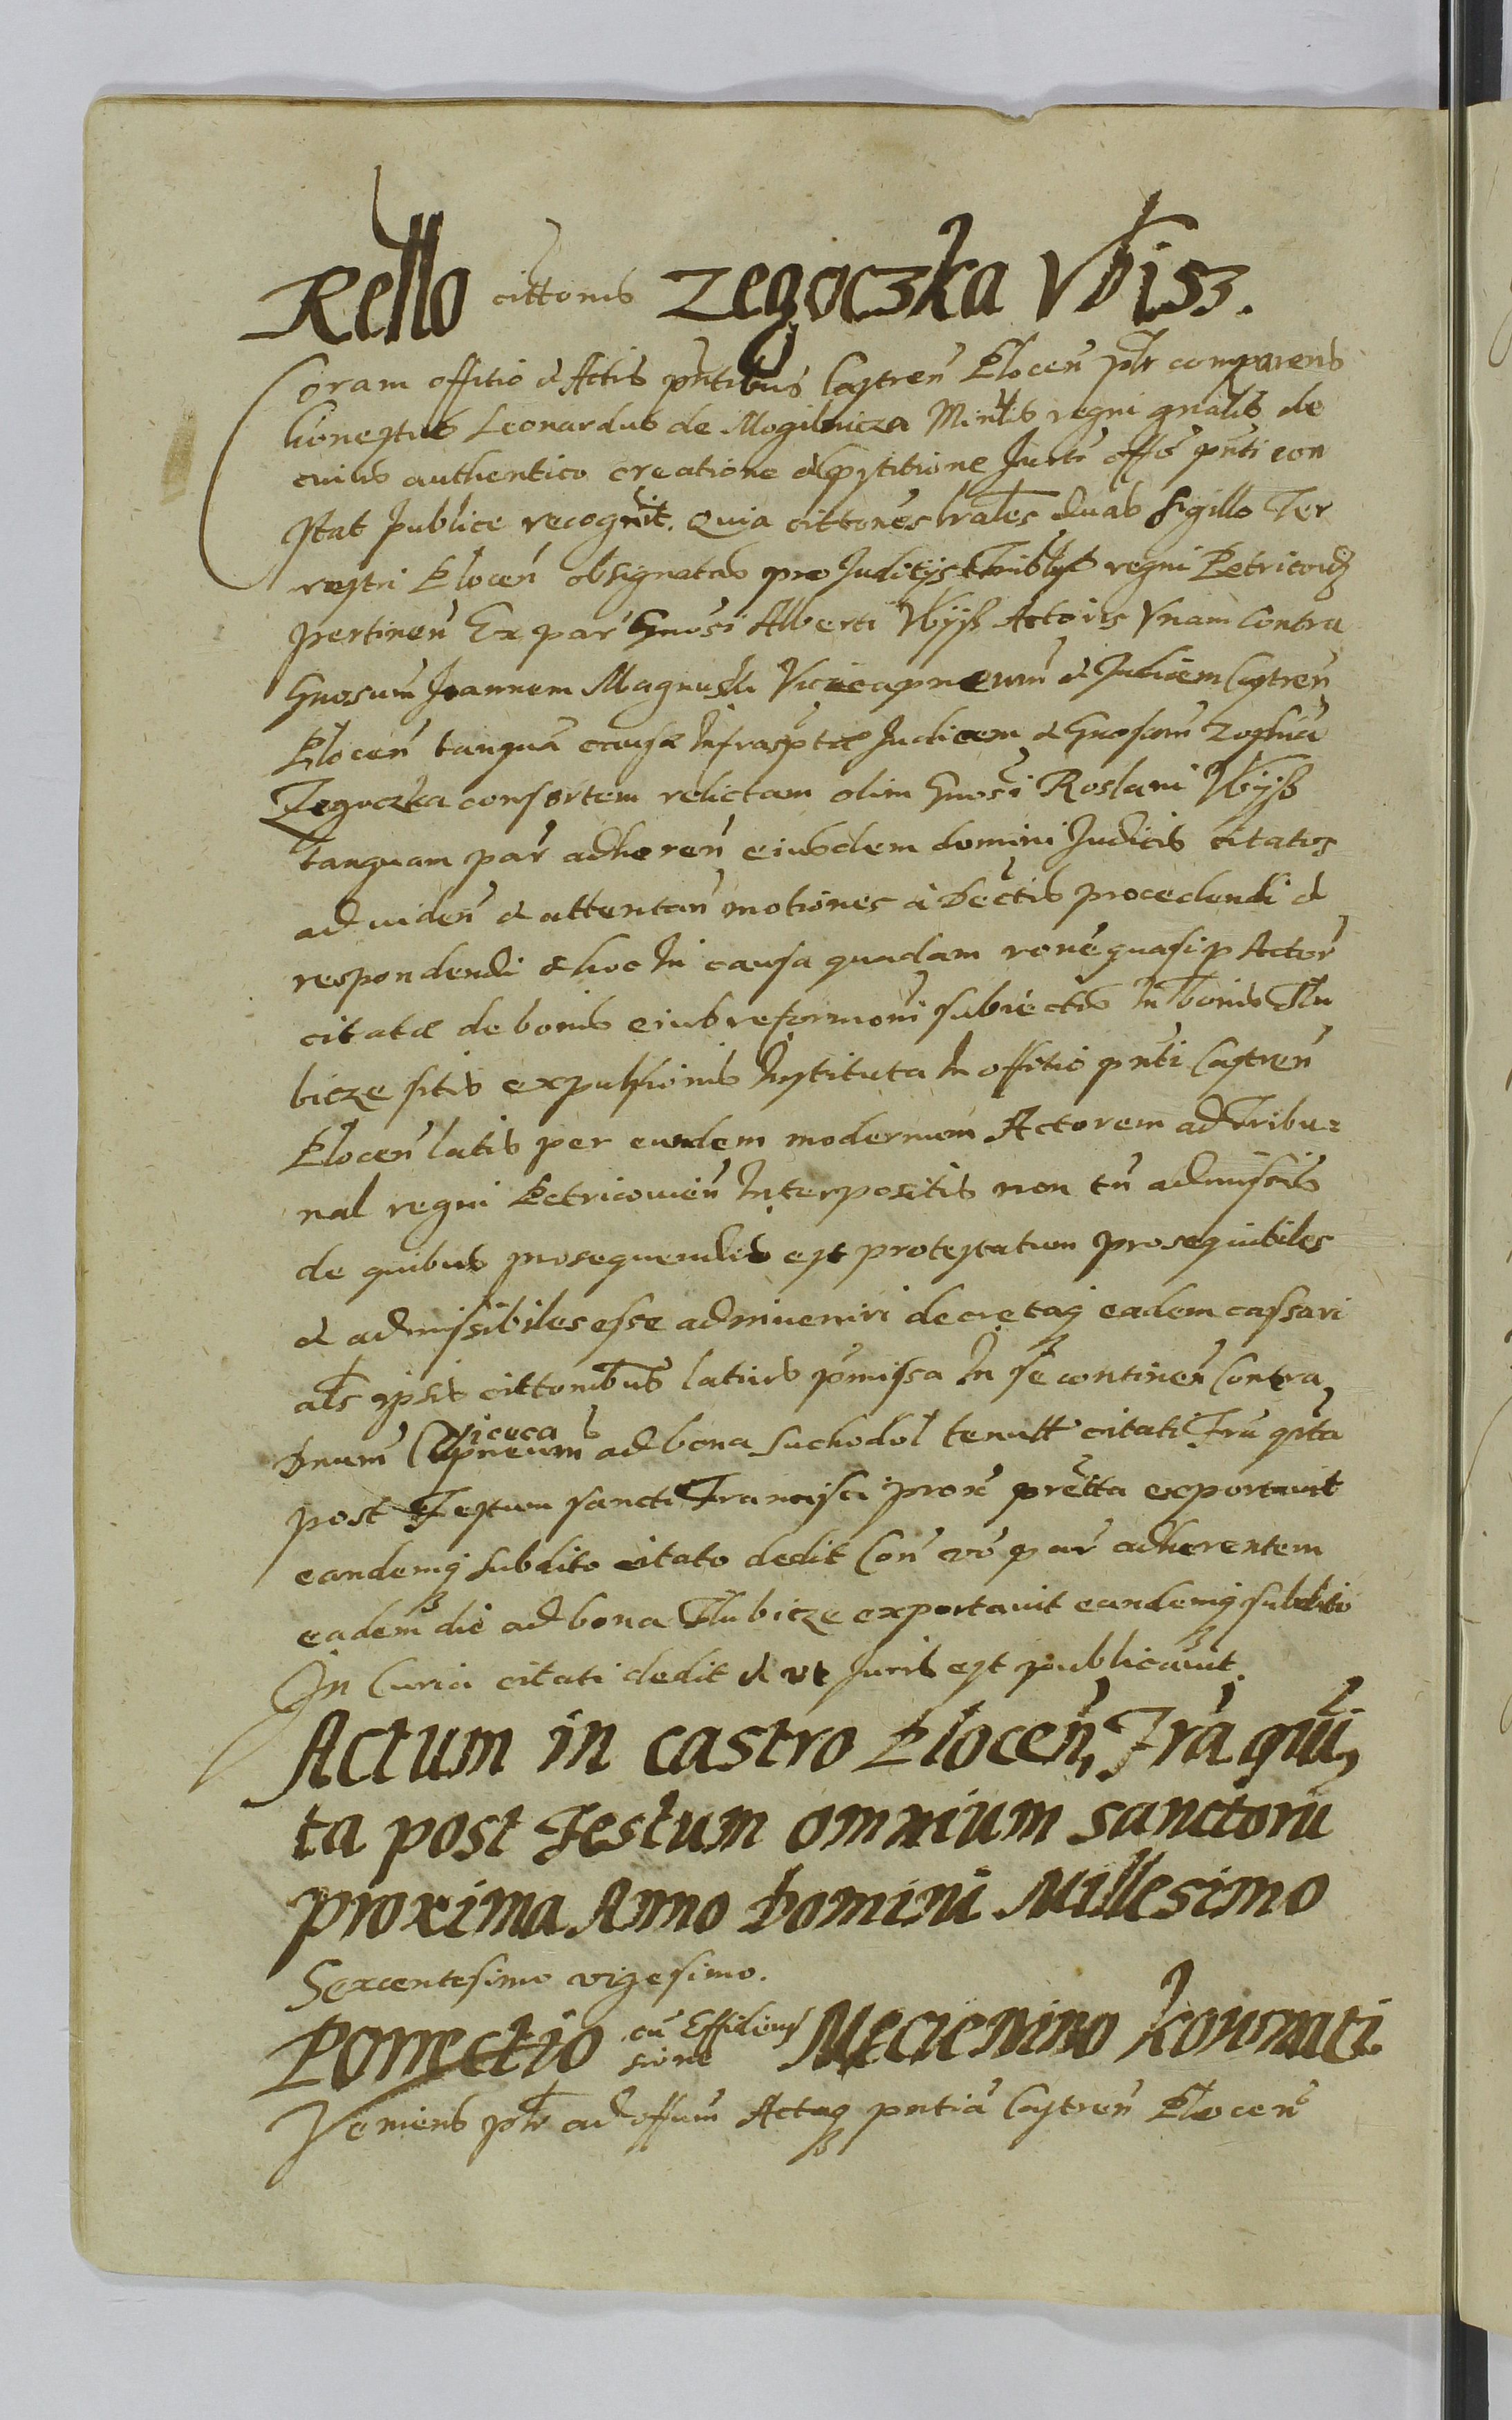 Rello cittonis Zegoczka Vbisz.
Coram offitio et Actis pntibus Castren Plocen plr comparens
honestus Leonardus de Mogilnicza Mintlis regni gnalis de
cuius authentico creatione Iurti offo pnti con
stat publice recognuit. Quia cittones lrales duas sigillo Ter
restri Plocen obsignatas pro Juditijs regni
pertinen Ex par Gnosi Alberti Vbysz Actoris Vnam Contra
Gnosum Joannem et Judicem Castren
Plocen tanquã causæ Infrasptæ Judicem et Gnosam Zophiã
Zegoczka consortem relictam olim Gnosi Roslani Vbysz
tanquam par adheren eiusdem domini Judicis citatos
ad viden et attentan motiones a Dectis procedendi et
respondendi et hoc In causa quadam rone quasi p Actor
citatæ de bonis eius reformoni subiectis In bonis Tlu
bicze sitis expulsionis Instituta In offitio pnti Castren
Plocen latis per eundem modernum Actorem ad Tribu=
nal regni Petricouien Interpositis non tn admissis
de quibus prosequendis est protestatum prosequibiles
et admissibiles esse adinueniri decretaq eadem cassari
als ipsis cittonibus latius pmissa In se continen Contra
Dnum Viceca pneum ad bona Suchodol tenutt citati Fra qta
post Festum sancti Francisci prox pretta exportauit
eandemq subdito citato dedit Con vo par adherentem
eadem die ad bona Tlubicze exportauit eandemq subdito
In Curia citati dedit et vt Juris est publicauit.
Actum in castro Plocen, Fra quin
ta post Festum omnium sanctoru
proxima Anno Domini Millesimo
Sexcentesimo vigesimo.
Porrectio cu Mecienino
Veniens plr ad offum Actaq pntia Castren Plocen